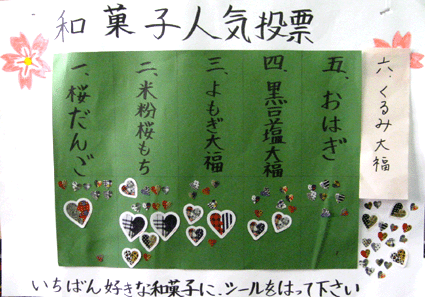 和菓子人気投票
一、桜だんご
二、米粉桜もち
三、よもぎ大福
四、黒豆塩大福
五、おはぎ
六、くるみ大福
いちばん好きな和菓子に、シールをはって下さい